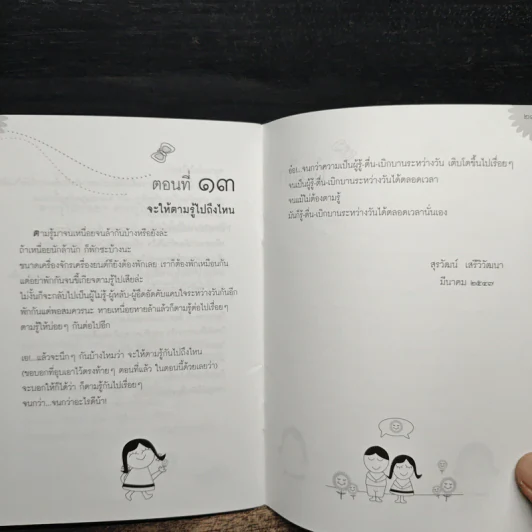 ตอนที่ ๑๓
จะให้ตามรู้ไปถึงไหน
ตามรู้มาจนเหนื่อยจนล้ากันบ้างหรือยังล่ะ
ถ้าเหนื่อยนักล้านัก ก็พักซะบ้างนะ
ขนาดเครื่องจักรเครื่องยนต์ก็ยังต้องพักเลย เราก็ต้องพักเหมือนกัน
แต่อย่าพักกันจนขี้เกียจตามรู้ไปเสียล่ะ
ไม่งั้นก็จะกลับไปเป็นผู้ไม่รู้-ผู้หลับ-ผู้อึดอัดคับแคบใจระหว่างวันกันอีก
พักกันแต่พอสมควรนะ หายเหนื่อยหายล้าแล้วก็ตามรู้ต่อไปเรื่อยๆ
ตามรู้ให้บ่อยๆ กันต่อไปอีก
เอ...แล้วจะนึกๆ กันบ้างไหมว่า จะให้ตามรู้กันไปถึงไหน
(ชอบอกที่ขุบเอาไว้ตรงท้ายๆ ตอนที่แล้ว ในตอนนี้ด้วยเลยว่า)
จะบอกให้ก็ได้ว่า ก็ตามรู้กันไปเรื่อยๆ
จนกว่า...จนกว่าอะไรดีน้า!
อ๋อ...จนกว่าความเป็นผู้รู้-ตื่น-เบิกบานระหว่างวัน เติบโตขึ้นไปเรื่อยๆ
จนเป็นผู้รู้-ตื่น-เบิกบานระหว่างวันได้ตลอดเวลา
จนแม้ไม่ต้องตามรู้
มันก็รู้-ตื่น-เบิกบานระหว่างวันได้ตลอดเวลานั่นเอง
สุรวัฒน์ เสรีวิวัฒนา
มีนาคม ๒๕๔๙